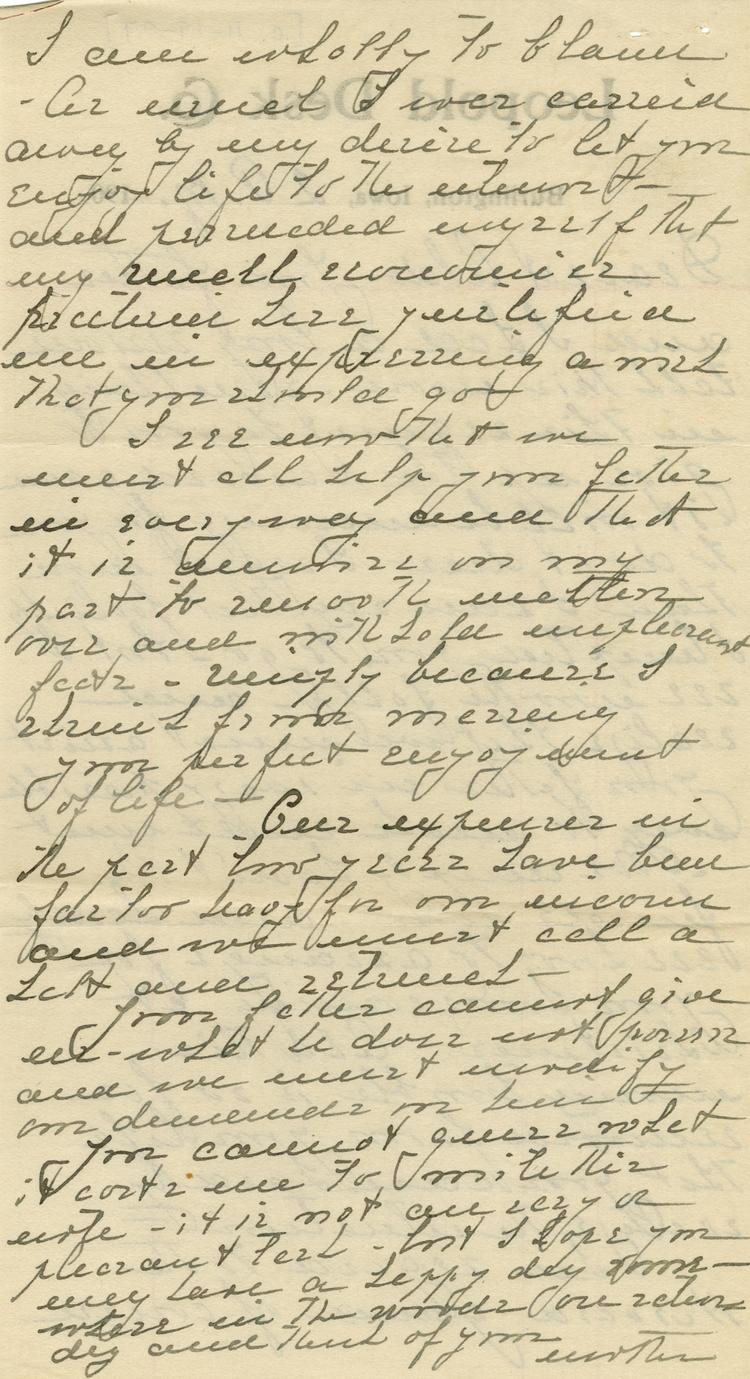 I am wholly to blame
- As usual I was carried
away by my desire to let you
enjoy life to the utmost -
and persuaded myself that
my small economies
practiced here justified
me in expressing a wish
that you should go
I see now that we
must all help your father
in every way and that
it is unwise on my
part to smooth matters
over and withhold unpleasant
facts - simply because I
shrink from marring
your perfect enjoyment
of life -
Our expenses in
the past two years have been
far too heavy for our income
and we must call a
halt and retrench -
Your father cannot give
us - what he does not possess
and we must modify
our demands on him
You cannot guess what
it costs me to write this
note - it is not an easy or
pleasant task - but I hope you
may have a happy day some-
where in the woods on
day and think of your
mother
Leopold Desk Co
Burlington, Iowa,